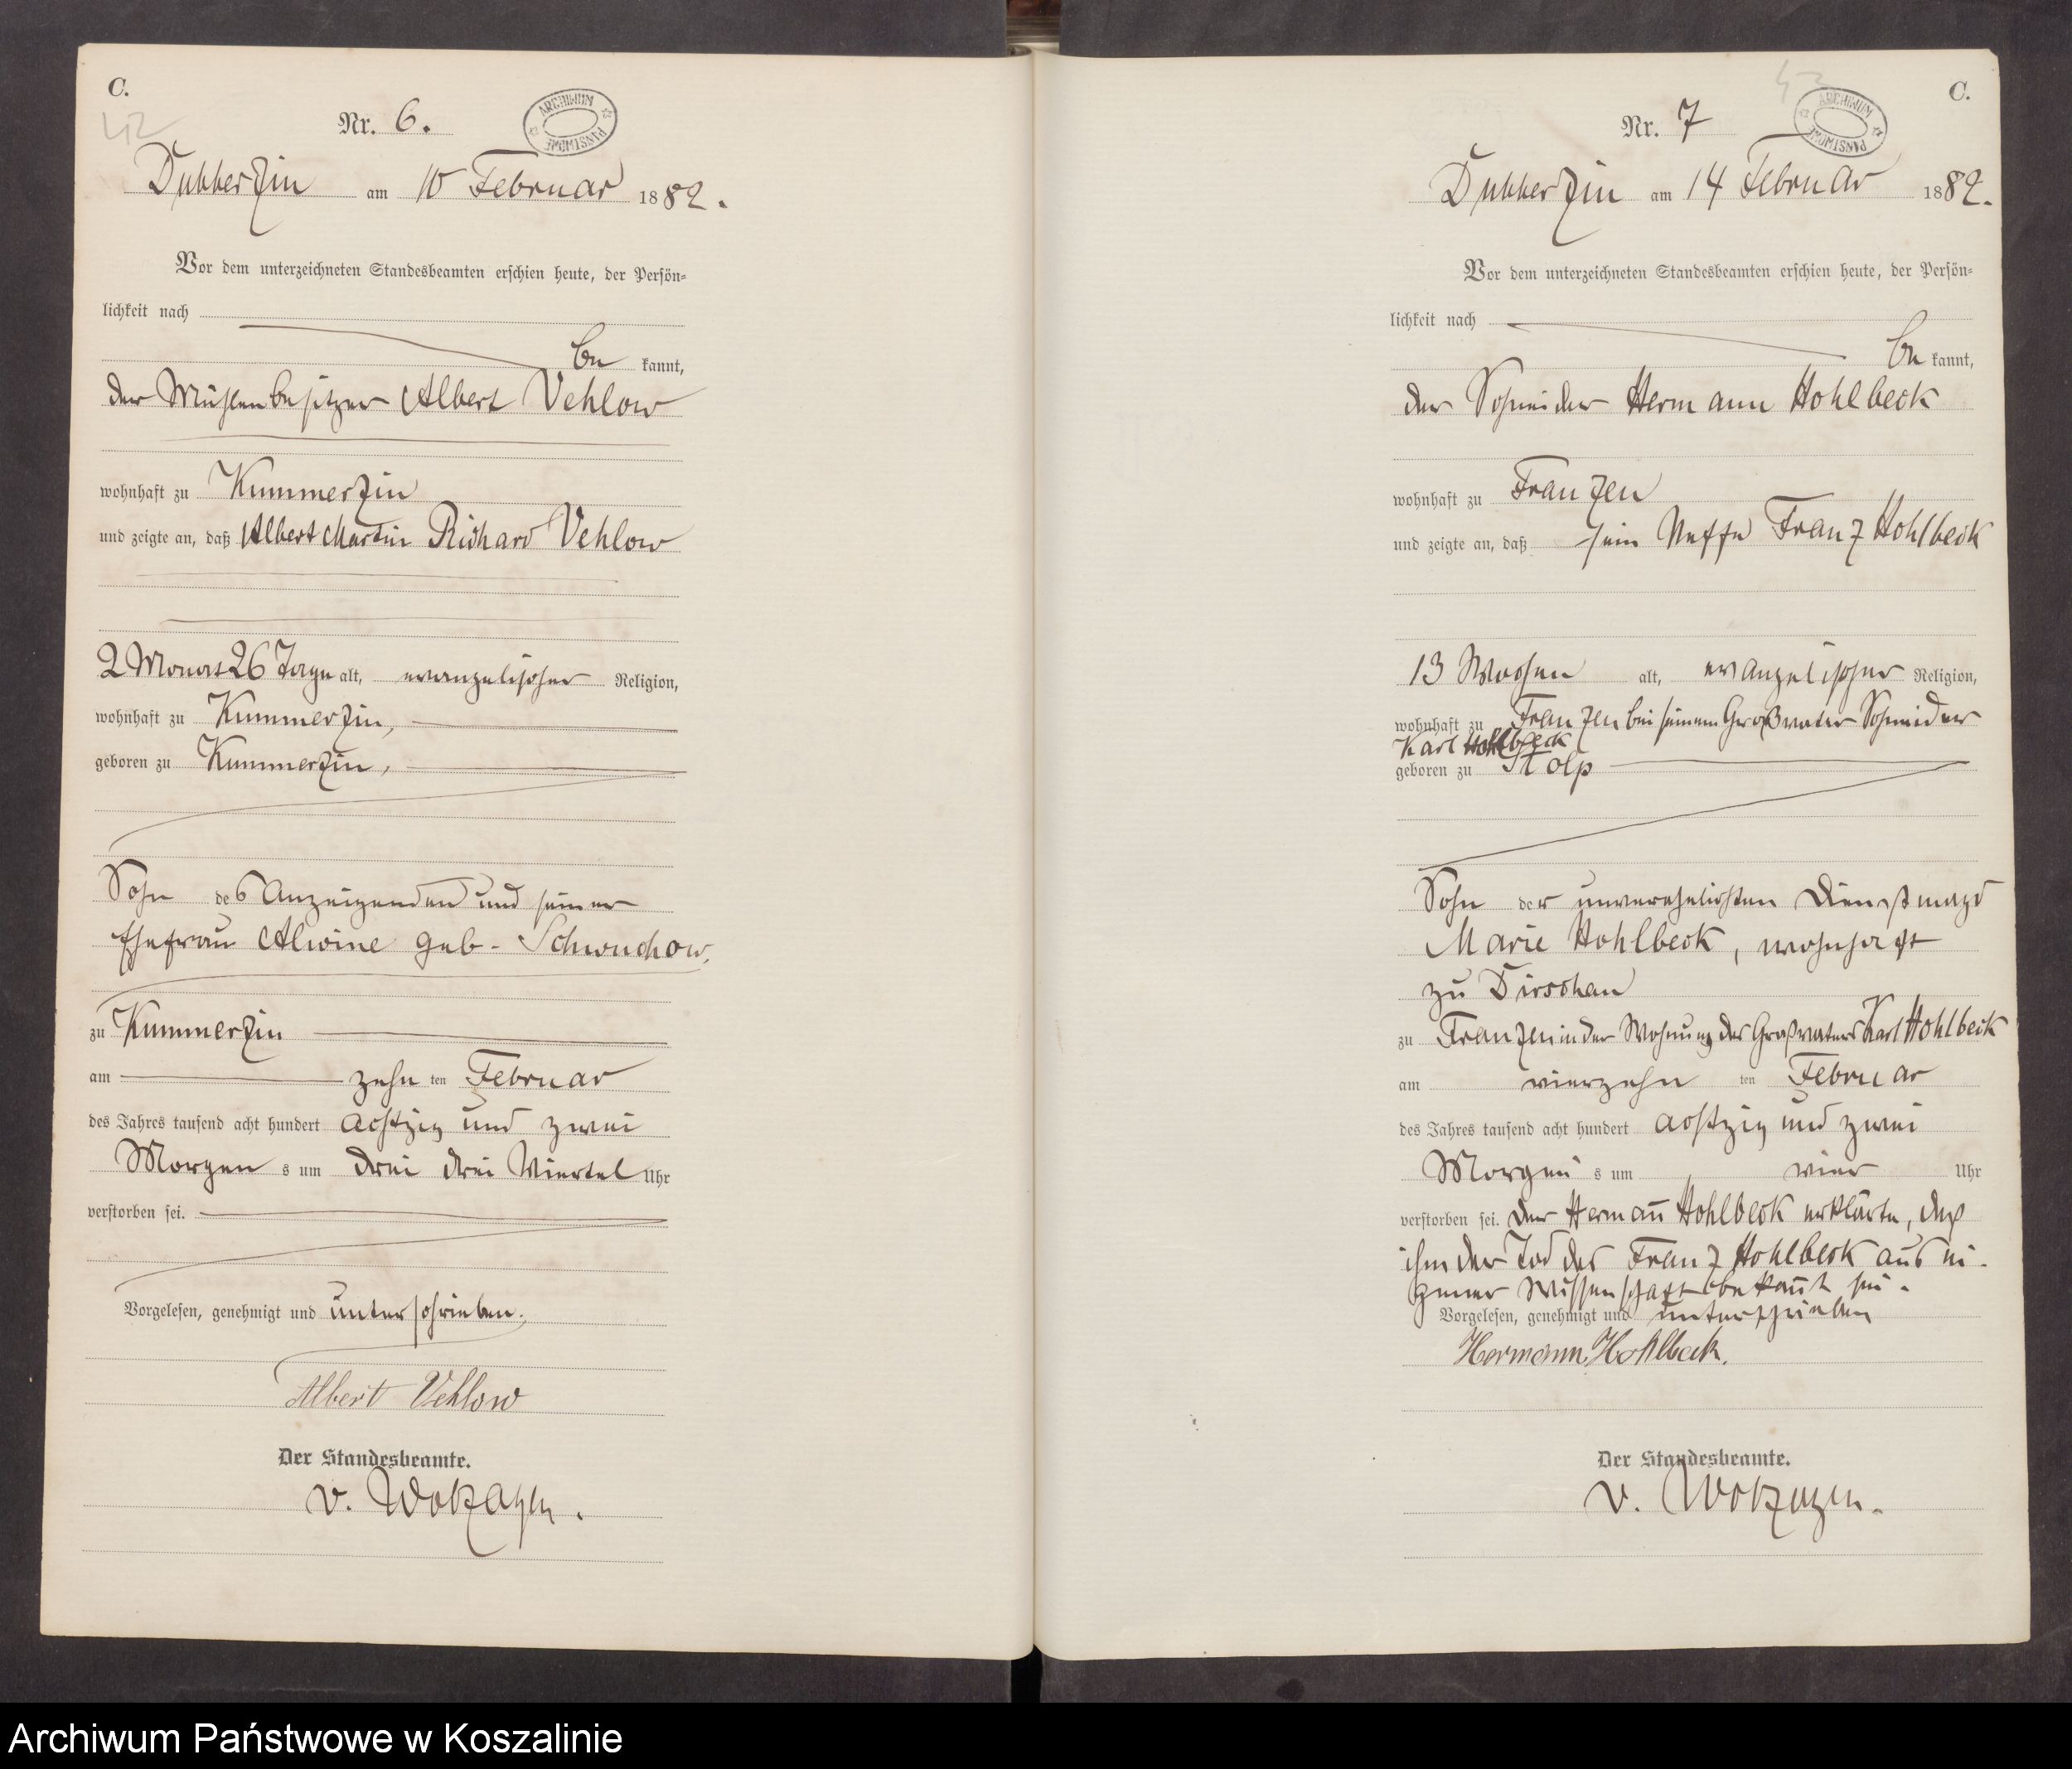 C.
42
Nr. 6.
ARCHIWUM PAŃSTWOWE
Dubberzin am 10 Februar 1882.
Vor dem unterzeichneten Standesbeamten erschien heute, der Persön-
lichkeit nach
be kannt,
der Mühlenbesitzer Albert Vehlow
wohnhaft zu Kummerzin
und zeigte an, daß Albert Martin Richard Vehlow
2 Monat 26 Tage alt, evangelischer Religion,
wohnhaft zu Kummerzin,
geboren zu Kummerzin,
Sohn des Anzeigenden und seiner
Ehefrau Alwine geb. Schwuchow,
zu Kummerzin
am zehn ten Februar
des Jahres tausend acht hundert achtzig und zwei
Morgen s um drei drei Viertel Uhr
verstorben sei.
Vorgelesen, genehmigt und unterschrieben.
Albert Vehlow
Der Standesbeamte.
v. Woizagen.
43
C.
Nr. 7
ARCHIWUM PAŃSTWOWE
Dubberzin am 14 Februar 1882.
Vor dem unterzeichneten Standesbeamten erschien heute, der Persön-
lichkeit nach
be kannt,
der Schneider Hermann Hohlbeck
wohnhaft zu Franzen
und zeigte an, daß sein Neffe Franz Hohlbeck
13 Wochen alt, evangelischer Religion,
wohnhaft zu Franzen bei seinem Großvater Schneider
Karl Hohlbeck
geboren zu Stolp
Sohn der unverehelichten Dienstmagd
Marie Hohlbeck, wohnhaft
zu Dirschau
zu Franzen in der Wohnung des Großvaters Karl Hohlbeck
am vierzehn ten Februar
des Jahres tausend acht hundert achtzig und zwei
Morgen s um vier Uhr
verstorben sei. Der Hermañ Hohlbeck erklärte, daß
ihm der Tod des Franz Hohlbeck aus ei-
gener Wissenschaft bekañt sei.
Vorgelesen, genehmigt und unterschrieben
Hermann Hohlbeck.
Der Standesbeamte.
v. Woizagen.
Archiwum Państwowe w Koszalinie